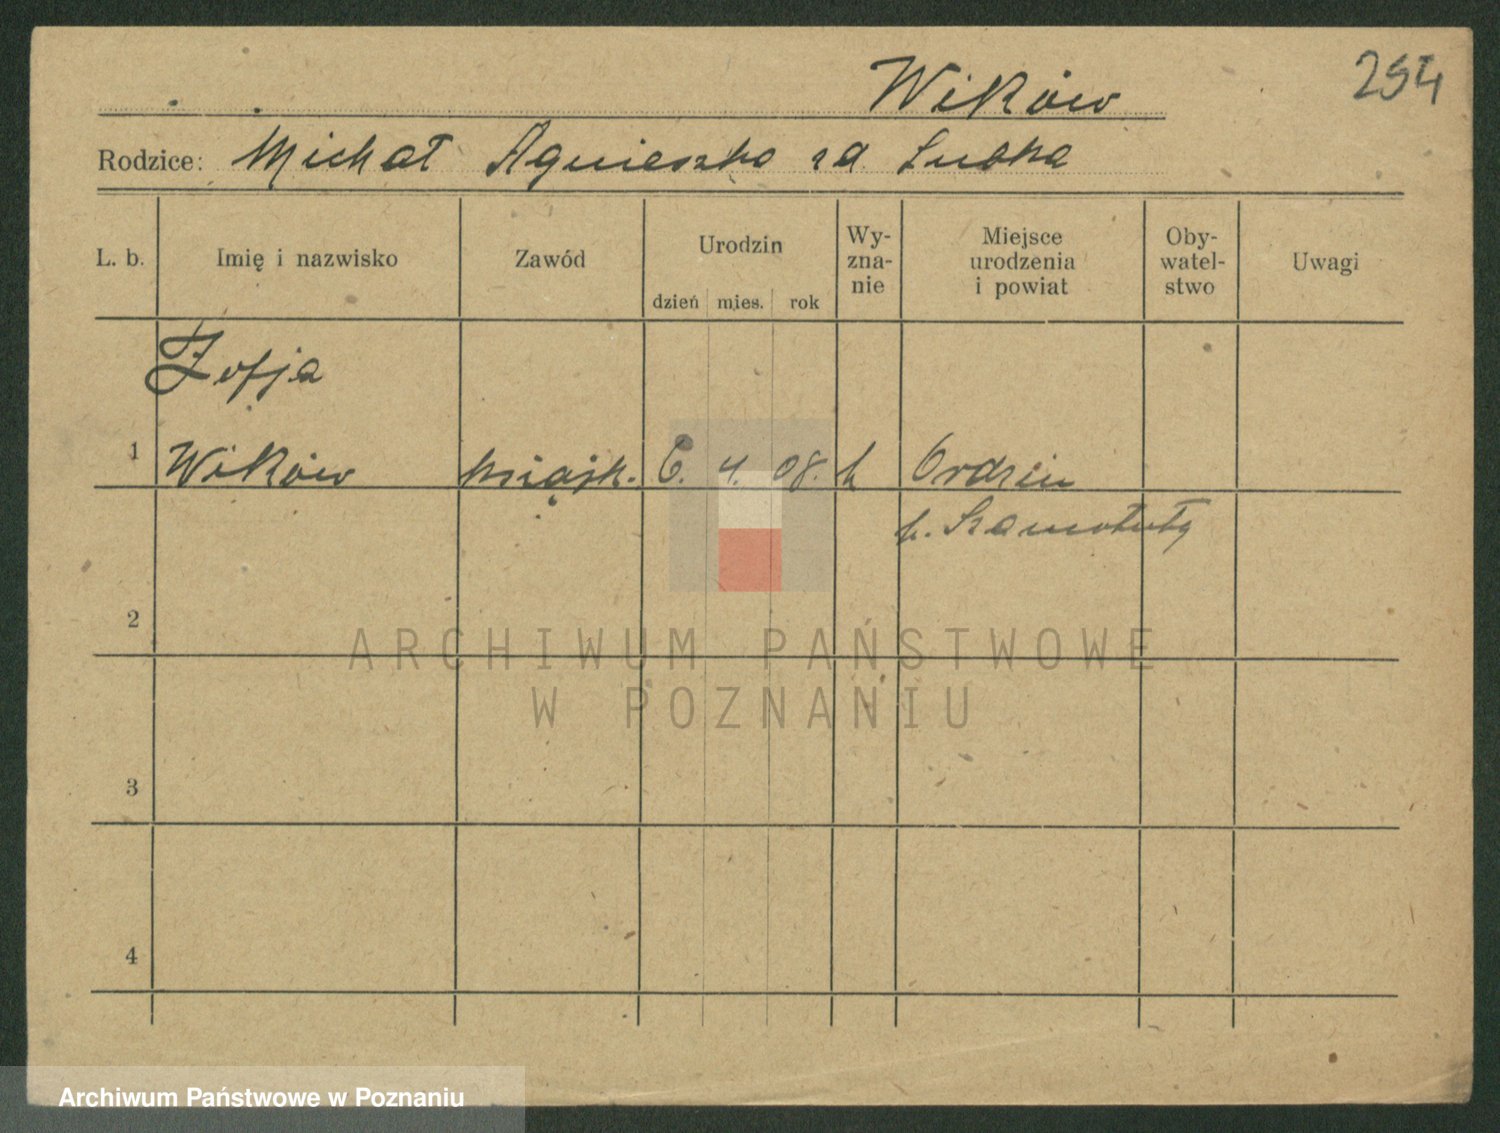 Wików
254
Rodzice: Michał Agnieszka zd. Lubka
L. b.
Imię i nazwisko
Zawód
Urodzin
dzień mies. rok
Wy-
zna-
nie
Miejsce
urodzenia
i powiat
Oby-
watel-
stwo
Uwagi
Zofja
1 Wików 6. 4. 08. k Ordzin
p. Szamotuły
2
3
4
ARCHIWUM PAŃSTWOWE
W POZNANIU
Archiwum Państwowe w Poznaniu